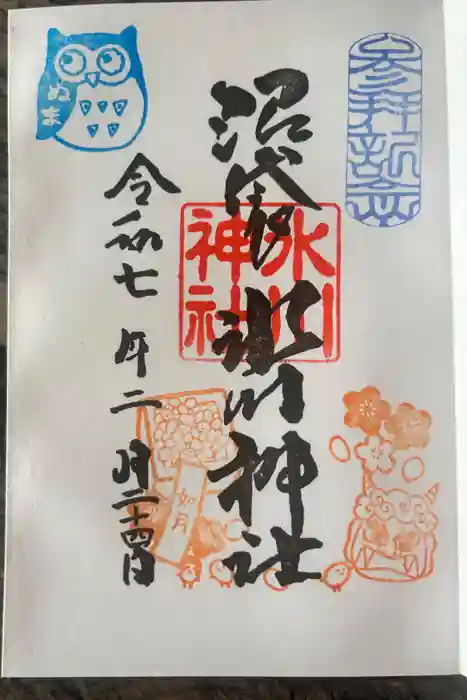 参拝記念
沼袋氷川神社
氷川神社
令和七年二月二十四日
ぬま
如月